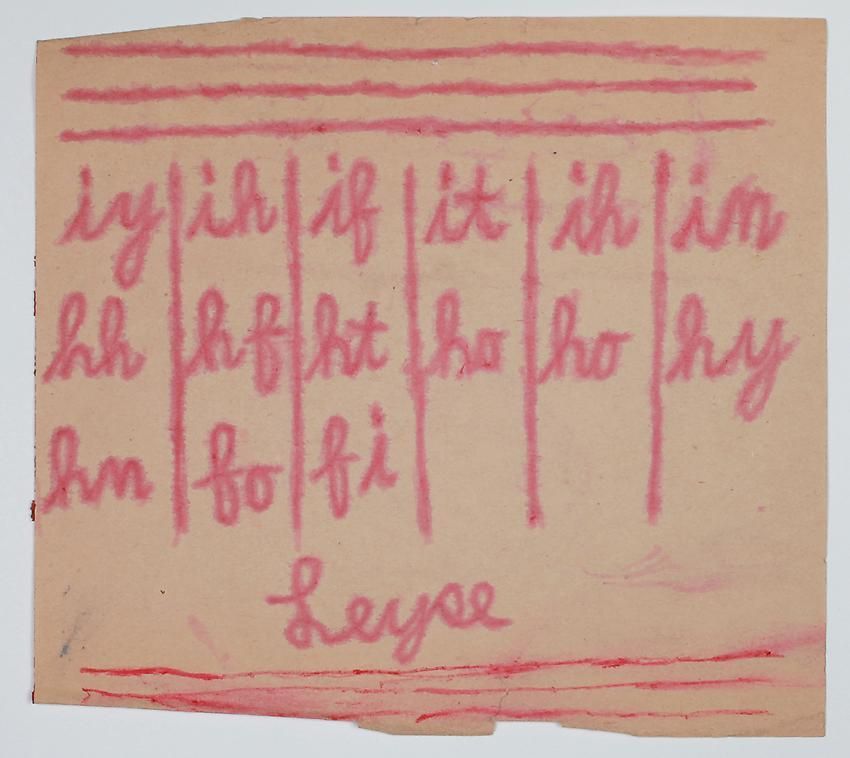 iy ih if it ih in
hh hf ht ho ho hy
hn fo fi
Leyse